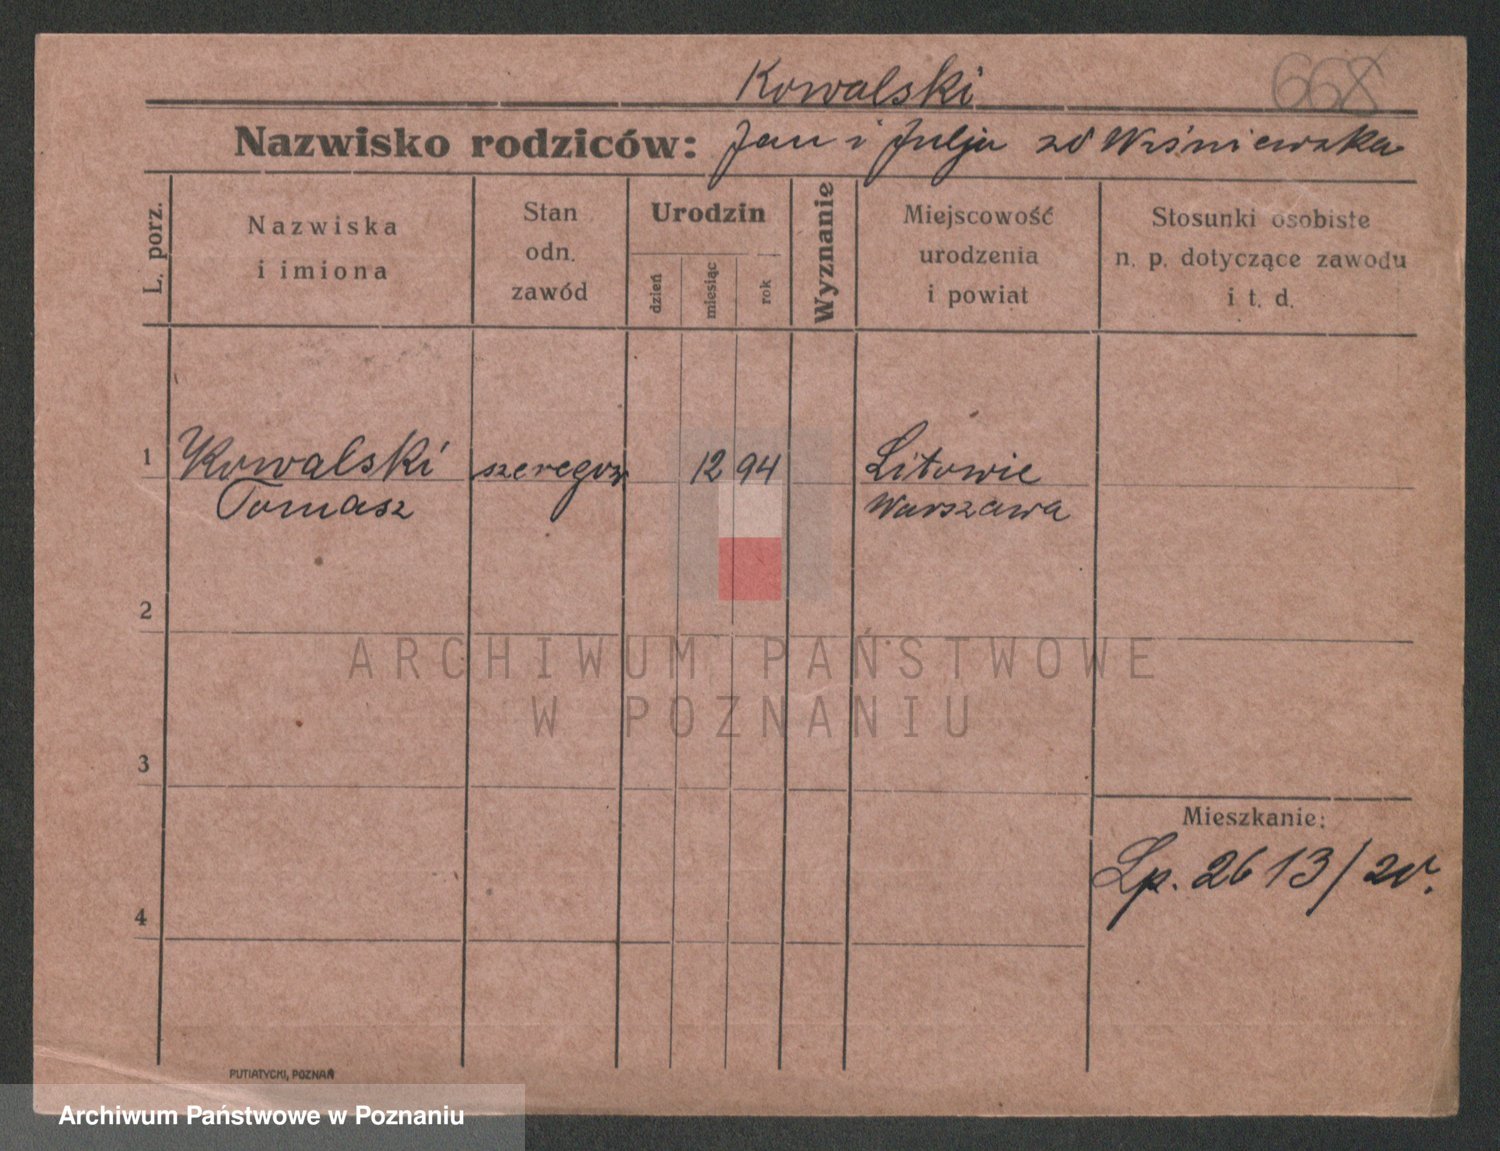 Kowalski
668
Nazwisko rodziców: Jan i Julja zd Wiśniewska
L. porz.
Nazwiska
i imiona
Stan
odn.
zawód
Urodzin
dzień
miesiąc
rok
Wyznanie
Miejscowość
urodzenia
i powiat
Stosunki osobiste
n. p. dotyczące zawodu
i t. d.
1 Kowalski szeregow 12 94 Litowie
Tomasz Warszawa
2
ARCHIWUM PAŃSTWOWE
W POZNANIU
3
Mieszkanie:
Lp. 2613/
4
PUTIATYCKI, POZNAŃ
Archiwum Państwowe w Poznaniu